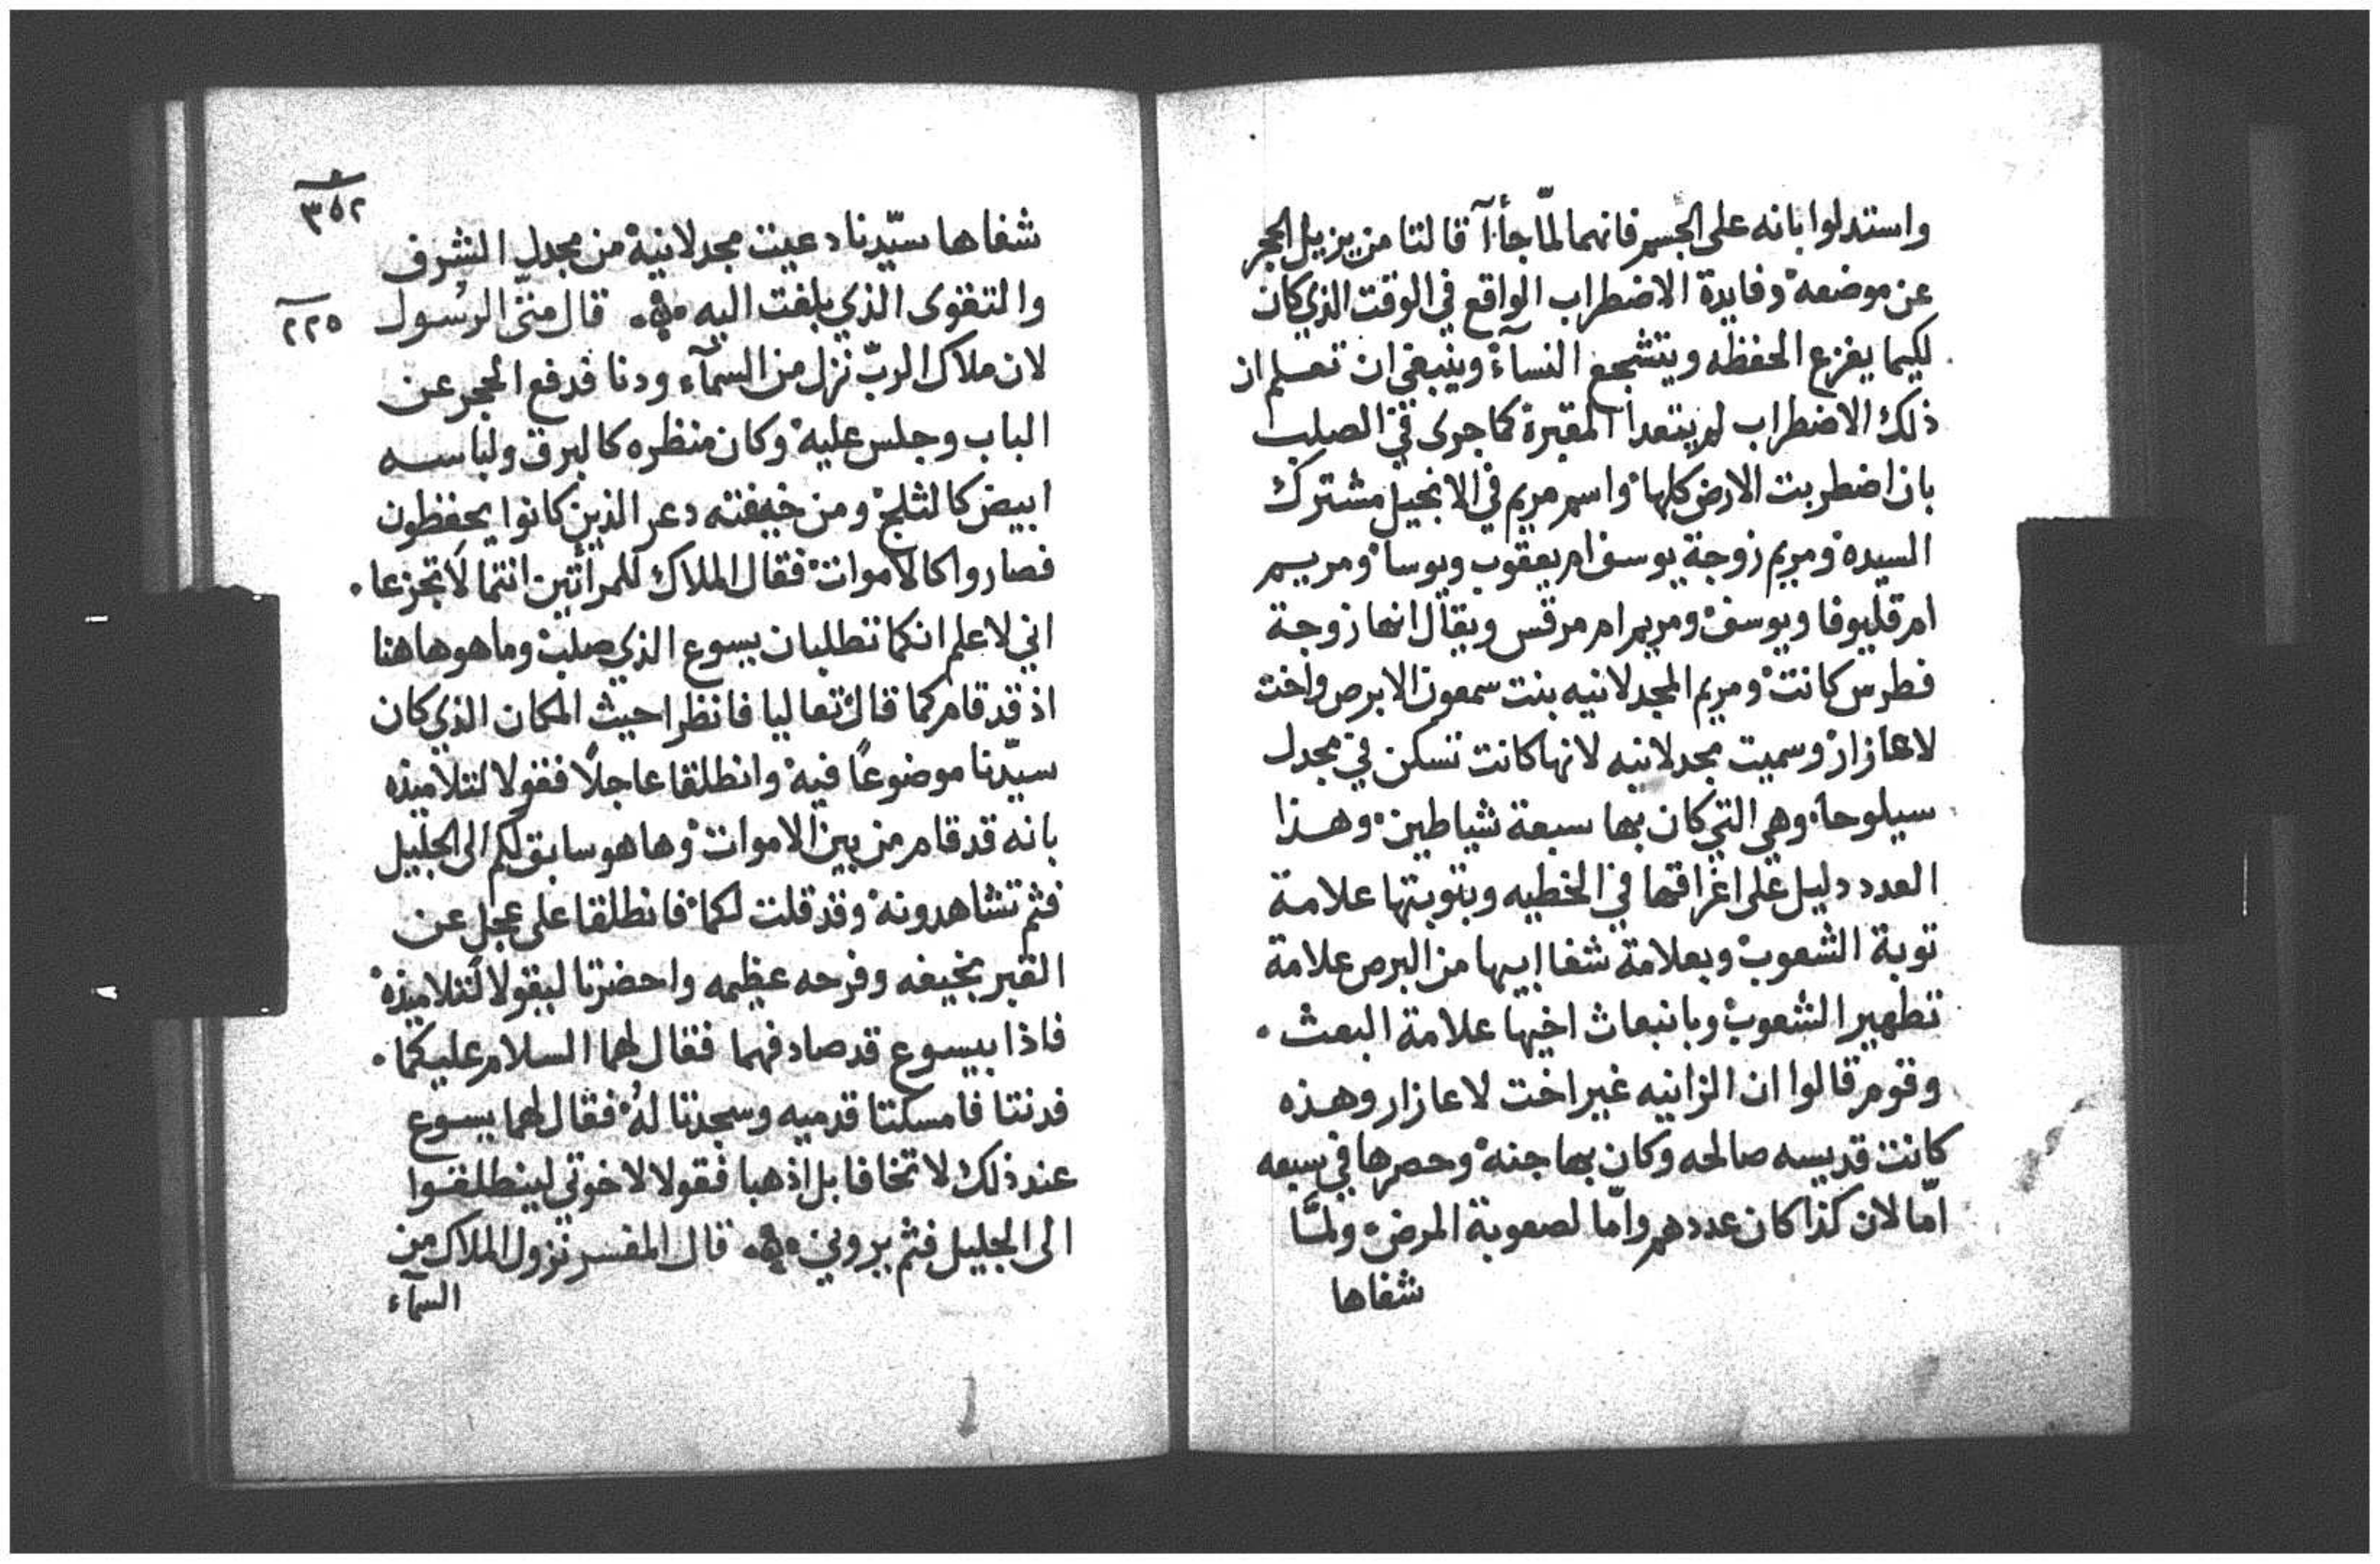 واستدلوا بانه على الجسر فانهما لمّا جأآ قالتا من يزيل الحجر
عن موضعه وفايدة الاضطراب الواقع في الوقت الذي كان
لكيما يفزع الحفظه ويتشجع النسآء وينبغي ان تعلم ان
ذلك الاضطراب لم يتعدا المقبرة كما جرى في الصلب
بان اضطربت الارض كلها واسم مريم في الانجيل مشترك
السيده ومريم زوجة يوسف ام يعقوب ويوسا ومريم
ام قليوفا ويوسف ومريم ام مرقس ويقال انها زوجة
فطرس كانت ومريم المجدلانيه بنت سمعون الابرص واخت
لاعازار وسميت مجدلانيه لانها كانت تسكن في مجدل
سيلوحا وهي التي كان بها سبعة شياطين وهذا
العدد دليل على اغراقها في الخطيه وبتوبتها علامة
توبة الشعوب وبعلامة شفا ابيها من البرص علامة
تطهير الشعوب وبانبعاث اخيها علامة البعث .
وقوم قالوا ان الزانيه غير اخت لاعازار وهذه
كانت قديسه صالحه وكان بها جنه وحصرها في سبعه
امّا لان كذا كان عددهم وامّا لصعوبة المرض ولمّا
شفاها
٣٥٢
شفاها سيّدنا دعيت مجدلانية من مجدل الشرف
والتقوى الذي بلغت اليه . قال متّى الرسول
٢٢٥
لان ملاك الربّ نزل من السمآء ودنا فدفع الحجر عن
الباب وجلس عليه وكان منظره كالبرق ولباسه
ابيض كالثلج ومن خيفته دعر الذين كانوا يحفظون
فصاروا كالاموات فقال الملاك للمرأتين انتما لا تجزعا .
اني لاعلم انكما تطلبان يسوع الذي صلب وما هو هاهنا
اذ قد قام كما قال تعاليا فانظرا حيث المكان الذي كان
سيّدنا موضوعًا فيه وانطلقا عاجلًا فقولا لتلاميذه
بانه قد قام من بين الاموات وها هو سابق لكم الى الجليل
فثم تشاهدونه وقد قلت لكما فانطلقا على عجل عن
القبر بخيفه وفرحه عظيمه واحضرتا ليقولا لتلاميذه
فاذا بيسوع قد صادفهما فقال لهما السلام عليكما .
فدنتا فامسكتا قدميه وسجدتا له فقال لهما يسوع
عند ذلك لا تخافا بل اذهبا فقولا لاخوتي لينطلقوا
الى الجليل فثم يروني . قال المفسر نزول الملاك من
السمآء